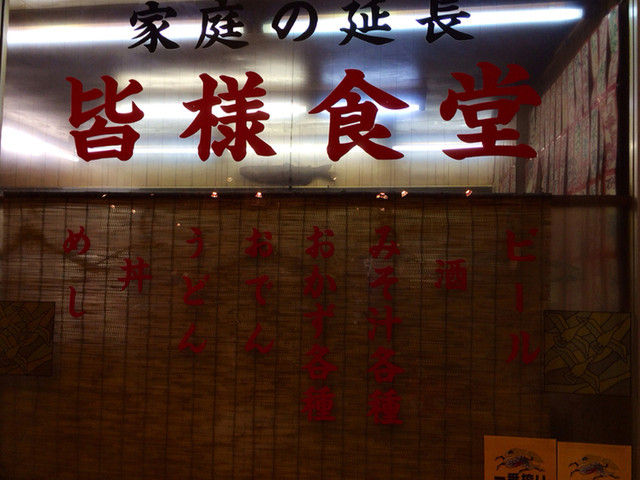 家庭の延長
皆様食堂
ビール
酒
みそ汁各種
おかず各種
おでん
うどん
丼
めし
一番搾り